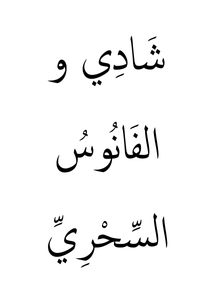 شَادِي و
الفَانُوسُ
السِّحْرِيِّ